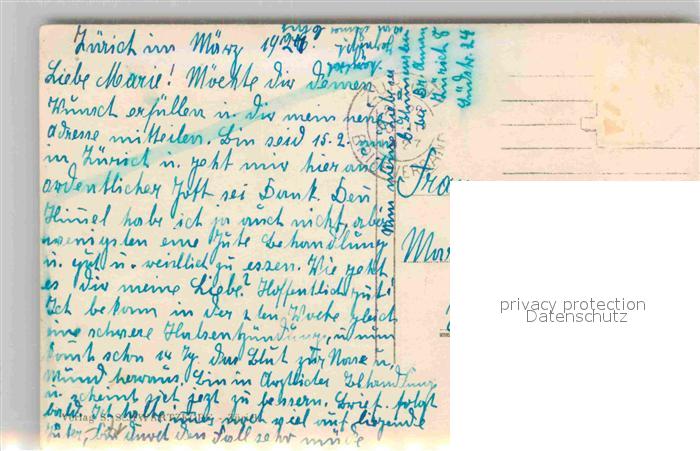 Zürich im März 1926?
Liebe Marie! Möchte dir deinen
Wunsch erfüllen u. dir mein neue
Adresse mitteilen. Bin seid 15.2. nun
in Zürich u. geht mir hier auch
ordentlicher Gott sei Dank. Den
Himel habe ich ja auch nicht, aber
wenigsten eine gute Behandlung
u. gut u. reichlich zu essen. Wie geht
es dir meine Liebe? Hoffentlich gut!
Ich bekam in der 2ten Woche gleich
eine schwere Halsentzündung, u. nun
komt schon 14 Tg. das Blut zur Nase u.
Mund heraus. Bin in ärztlicher Behandlung
u. scheint sich jezt zu bessern. Brief folgt
bald. Ich halte nur noch viel auf liegende
bin durch den Fall sehr müde
Verlag
Zürich
Nun meine
b.
bei Dr.
Zürich 8
Südstr. 24
Frau
Mar
privacy protection
Datenschutz